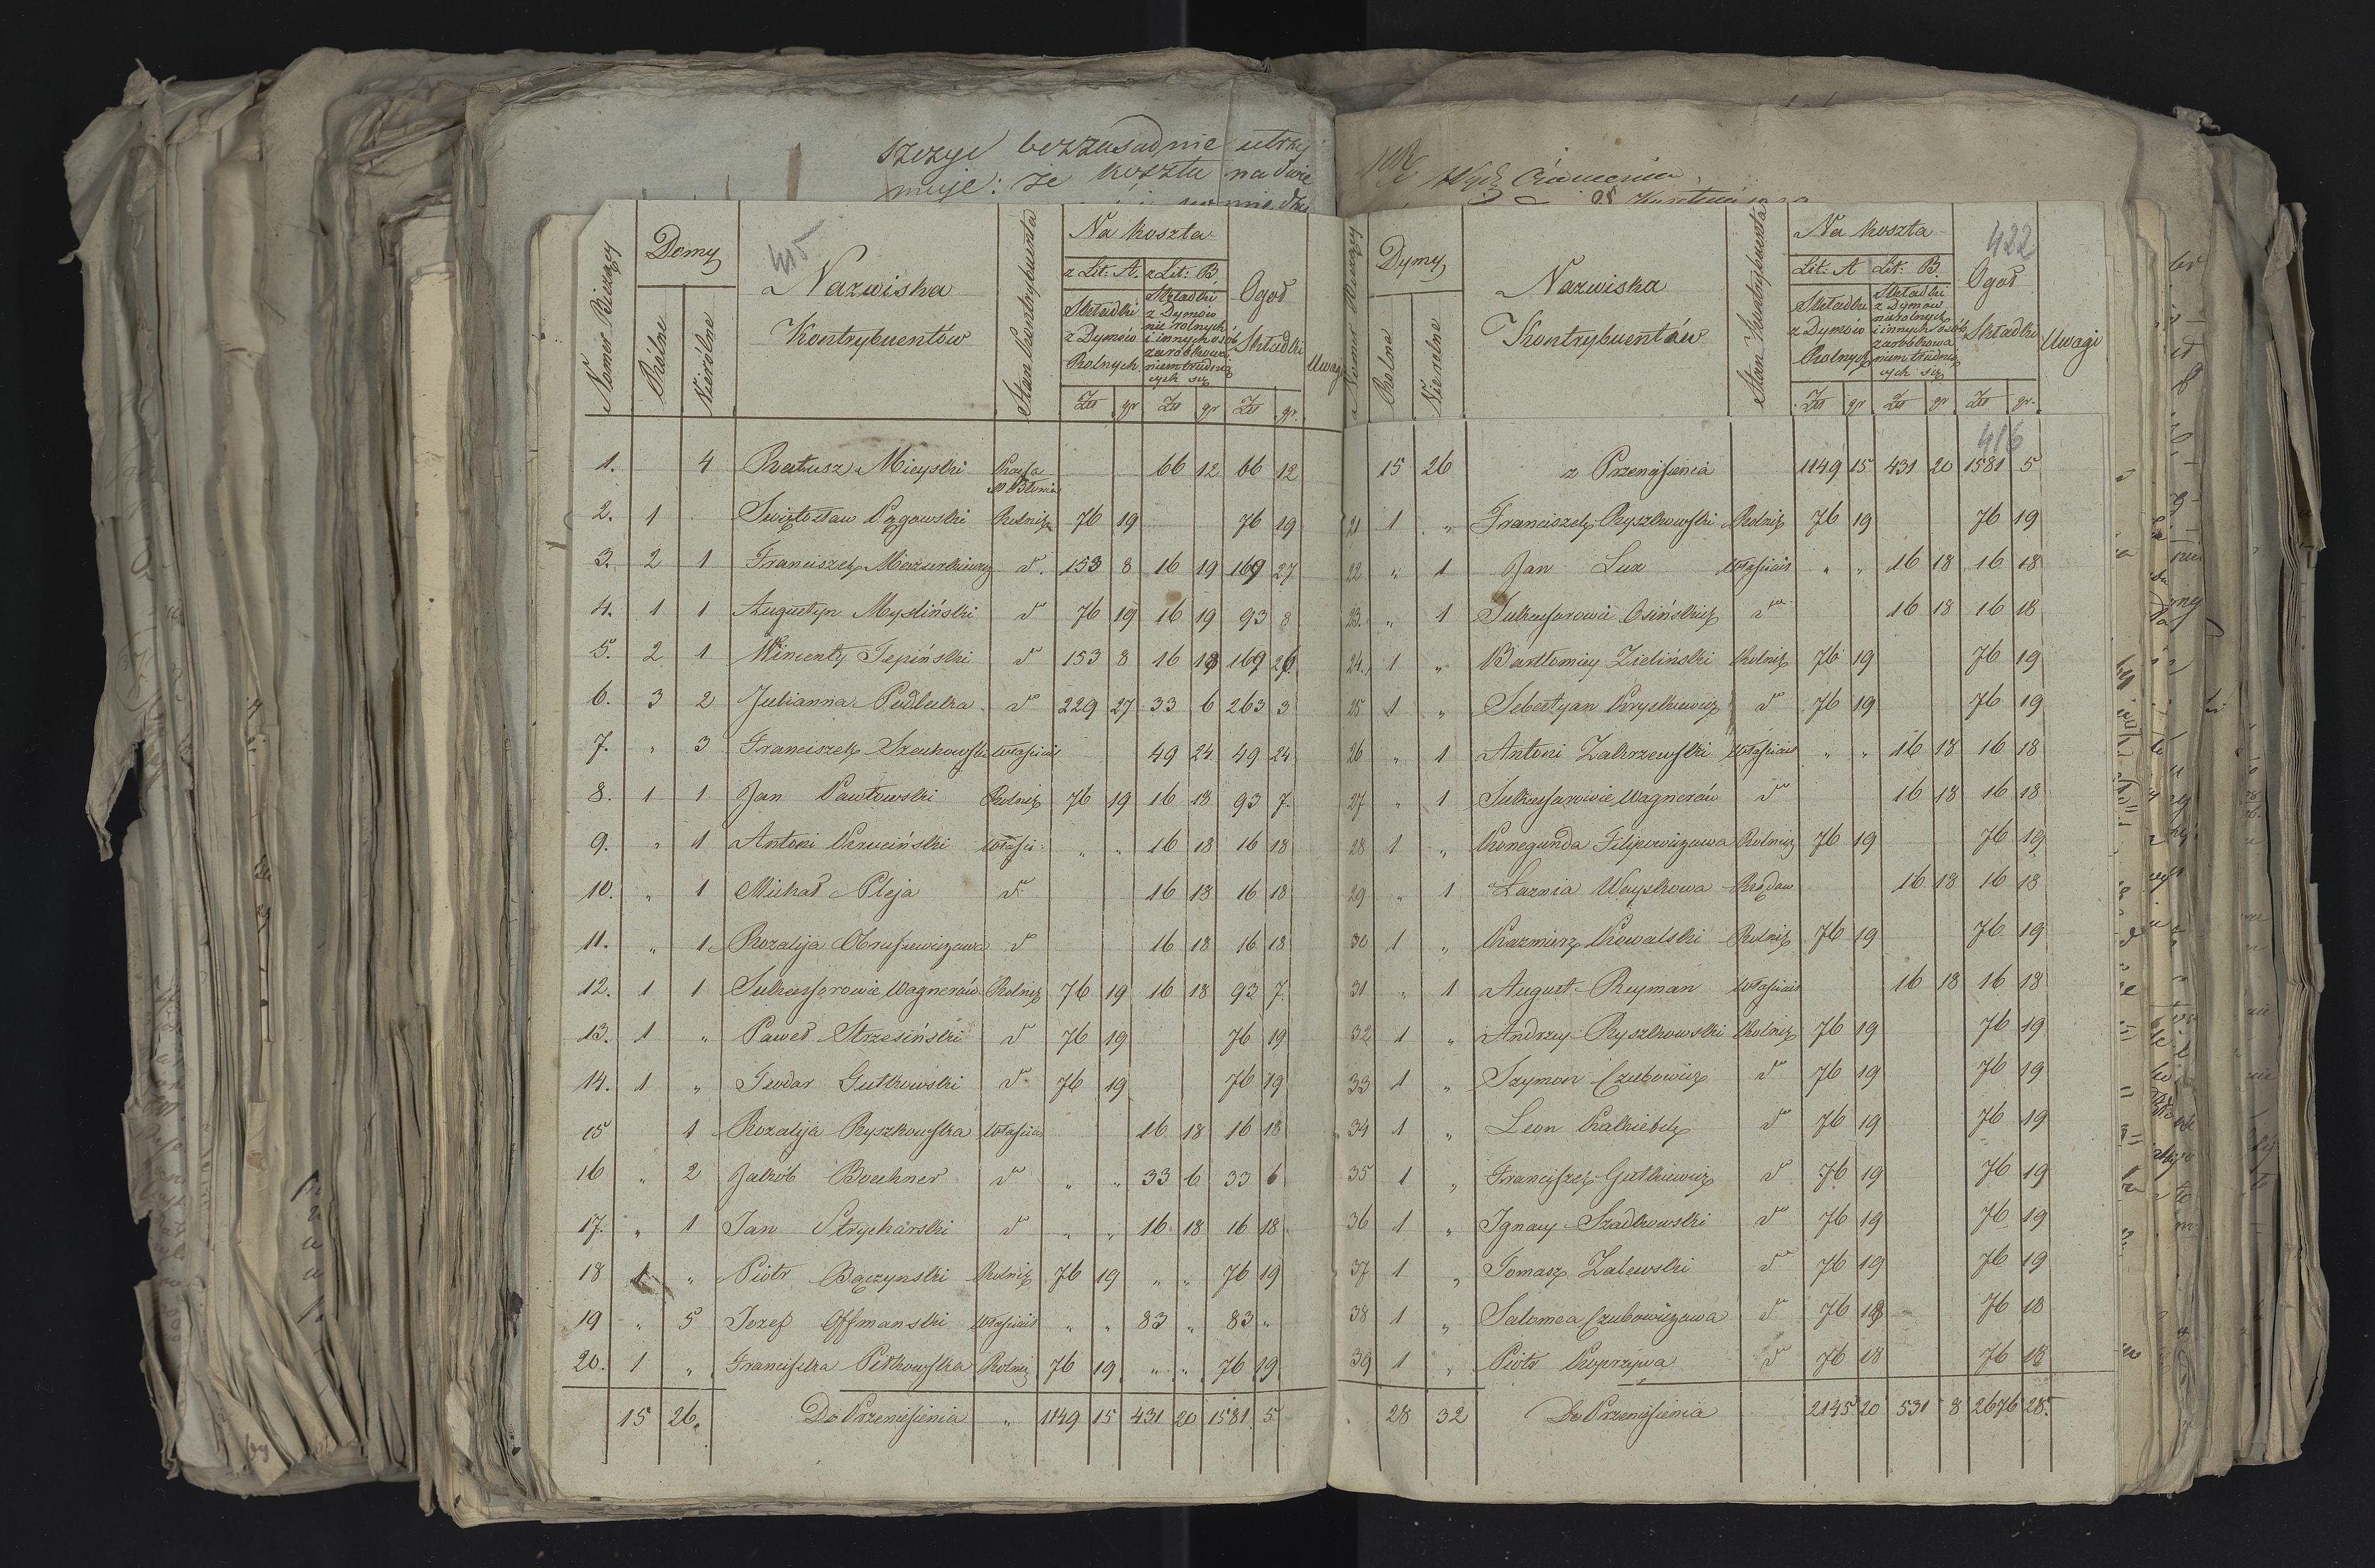 szczyc bezzasadnie utrzy
muje: że koszta na dwie
Numer Bieżący
Domy
Rólne
Nierólne
415
Nazwiska
Kontrybuentów
Stan Kontrybuenta
Na koszta
z Lit: A. z Lit: B.
Składki z Dymów Rolnych
Składki z Dymów nie rolnych i innych osób zarobkowaniem trudniących się
Ogół Składki
Uwagi
Zł gr Zł gr Zł gr.
1. 4 Ratusz Mieyski Kassa M Błonia 66 12 66 12
2. 1 Swiętosław Łagowski Rolnik 76 19 76 19
3. 2 1 Franciszek Mazurkiewicz d. 153 8 16 19 169 27
4. 1 1 Augustyn Mysliński d 76 19 16 19 93 8
5. 2 1 Wincenty Tepiński d 153 8 16 18 169 26
6. 3 2 Julianna Podlecka d 229 27 33 6 263 3
7. " 3 Franciszek Szenkowski właściciel 49 24 49 24
8. 1 1 Jan Pawłowski Rolnik 76 19 16 18 93 7.
9. " 1 Antoni Kruciński właści: " " 16 18 16 18
10. " 1 Michał Pleja d 16 18 16 18
11. " 1 Rozalija Obrusiewiczowa d 16 18 16 18
12. 1 1 Sukcessorowie Wagnerów Rolnik 76 19 16 18 93 7.
13. 1 " Paweł Strzesiński d 76 19 76 19
14. 1 " Teodor Gutkowski d 76 19 76 19
15 1 Rozalija Ryszkowska właściciel 16 18 16 18
16 " 2 Jakób Buchner d " " 33 6 33 6
17. " 1 Jan Strycharski d " " 16 18 16 18
18 1 " Piotr Bączynski Rolnik 76 19 " " 76 19
19 " 5 Jozef Offmanski właściciel " " 83 " 83 "
20. 1 " Franciszka Pitkowska Rolnik 76 19 " " 76 19
15 26. Do Przeniesienia " 1149 15 431 20 1581 5
Numer Bieżący
Dymy
Rolne
Nierolne
Nazwiska
Kontrybuentów
Stan Kontrybuenta
Na koszta
Lit: A Lit: B.
Składki z Dymów Rolnych
Składki z Dymów nierolnych i innych osób zarobkowaniem trudniących się
422
Ogół Składki
Uwagi
Zł gr Zł gr Zł gr.
416
15 26 z Przeniesienia 1149 15 431 20 1581 5
21 1 " Franciszek Ryszkowski Rolnik 76 19 76 19
22 " 1 Jan Lux właściciel " " 16 18 16 18
23. " 1 Sukcessorowie Osińskich d 16 18 16 18
24. 1 " Bartłomiey Zieliński Rolnik 76 19 76 19
25 1 " Sebestyan Kryskiewicz d 76 19 76 19
26 " 1 Antoni Zakrzewski właściciel " " 16 18 16 18
27 " 1 Sukcessorowie Wagnerów d 16 18 16 18
28 1 " Konegunda Filipowiczowa Rolnik 76 19 76 19
29 " 1 Łaznia Woyskowa Rządow 16 18 16 18
30 1 " Kazmierz Kowalski Rolnik 76 19 76 19
31 " 1 August Reyman właściciel 16 18 16 18
32 1 " Andrzey Ryszkowski Rolnik 76 19 76 19
33 1 " Szymon Czubowicz d 76 19 76 19
34 1 " Leon Kalkiebek d 76 19 76 19
35 1 " Franciszek Gutkiewicz d 76 19 76 19
36 1 " Ignacy Szadkowski d 76 19 76 19
37 1 " Tomasz Zalewski d 76 19 76 19
38 1 " Salomea Czubowiczowa d 76 18 76 18
39 1 " Piotr Koprzywa d 76 18 76 18
28 32 Do Przeniesienia 2145 20 531 8 2676 28.